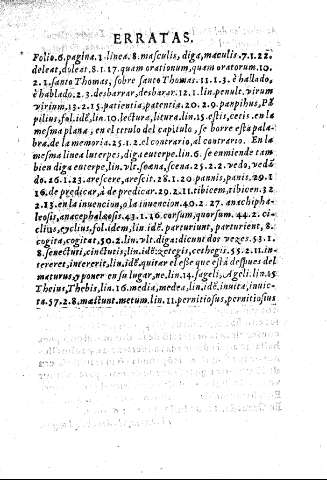 ERRATAS.
Folio.6.pagina.1.linea.8.masculis, diga, maculis.7.1.22.
deleat, doleat.8.1.17.quam orationum, quam oratorum.10.
2.1.santo Thomas, sobre santo Thomas.11.1.3. è hallado,
è hablado.2.3.desbarrar, desbarar.12.1.lin.penult. virum
virinm.13.2.15.patientia, patentia.20.2.9.panpihus, Pã
pilius, fol.idẽ, lin.10.lectura, litura.lin.15.estis, cetis. en la
mesma plana, en el titulo del capitulo, se borre esta pala-
bra, de la memoria.25.1.2.el contrario, al contrario. En la
mesma linea luterpes, diga euterpe.lin.6.se enmiende tam
bien diga euterpe, lin.vlt.suena, scena.25.2.2.vedo, vedã
do.26.1.23.arescere, arescit.28.1.20.pannis, panis.29.1
16.de predicar, à de predicar.29.2.11.tibicem, tibicem.32
2.13.en la inuencion, o la inuencion.40.2.27.anschipha-
leosis, anacephalæosis.43.1.16.corsum, quorsum.44.2.ci-
clius, cyclius, fol.idem, lin.idẽ.parturiunt, parturient, 8.
cogita, cogitat, 50.2.lin.vlt.diga:dicunt dos vezes.53.1.
8.senectuti, cinctutis, lin.idẽ:zetegis, cethegis.55.2.11.in-
tereret, intererit, lin.idẽ.quitar el esse que està despues del
maturus, y poner en su lugar, ne.lin.14.sageli, Ageli.lin.15
Theius, Thebis, lin.16.media, medea, lin.idẽ.inuita, inuic-
ta.57.2.8.mactunt.metum.lin.11.pernitiosus, pernitiosius